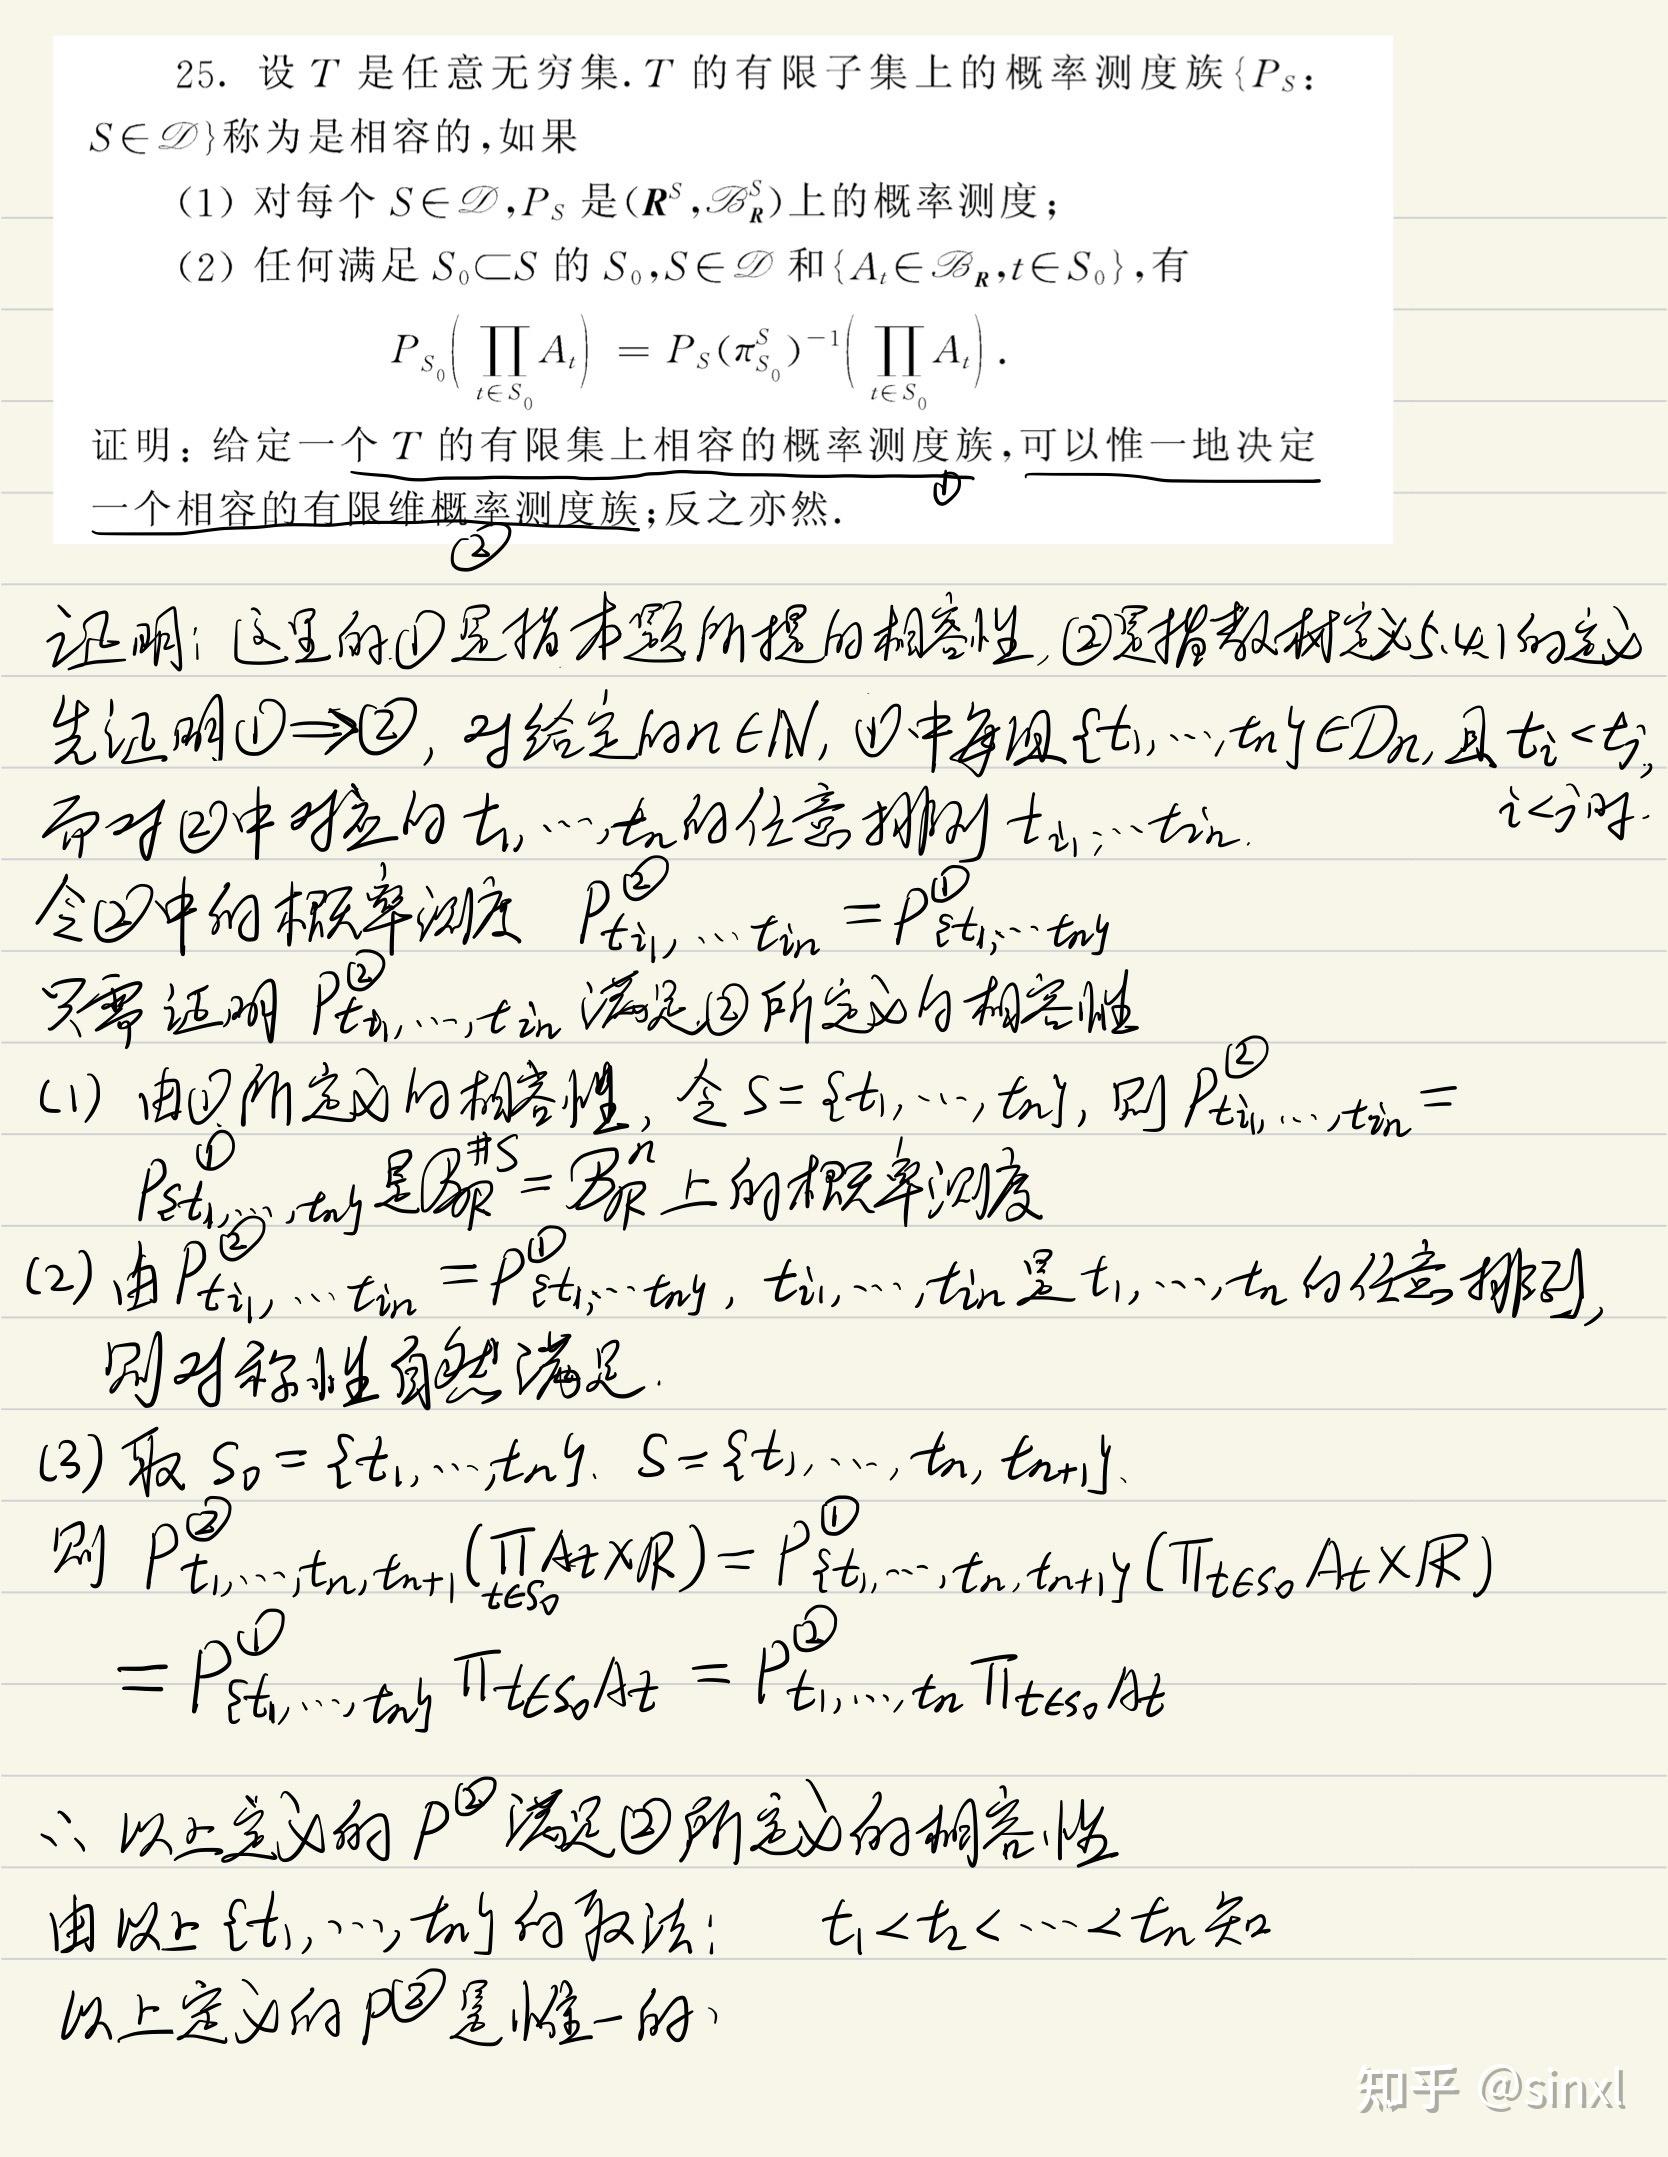 25. 设 T 是任意无穷集. T 的有限子集上的概率测度族{P_S:
S∈𝒟}称为是相容的,如果
(1) 对每个 S∈𝒟,P_S 是(R^S,ℬ_R^S)上的概率测度;
(2) 任何满足 S_0⊂S 的 S_0,S∈𝒟 和{A_t∈ℬ_R,t∈S_0},有
P_{S_0}(∏_{t∈S_0} A_t) = P_S(π_{S_0}^S)^{-1}(∏_{t∈S_0} A_t).
证明: 给定一个 T 的有限集上相容的概率测度族,可以惟一地决定
①
一个相容的有限维概率测度族;反之亦然.
②
证明: 这里的①是指本题所提的相容性,②是指教材定义5.4.1的定义
先证明①⇒②, 对给定的n∈N, ①中每组{t_1,…,t_n}∈D_n, 且 t_i<t_j,
i<j时.
而对②中对应的 t_1,…,t_n的任意排列 t_{i_1},…t_{i_n}.
令②中的概率测度 P^②_{t_{i_1},…t_{i_n}} = P^①_{{t_1,…t_n}}
只需证明 P^②_{t_{i_1},…,t_{i_n}} 满足②所定义的相容性
(1) 由①所定义的相容性, 令 S={t_1,…,t_n}, 则 P^②_{t_{i_1},…,t_{i_n}} =
P^①_{{t_1,…,t_n}} 是ℬ_R^{#S} = ℬ_R^n 上的概率测度
(2) 由 P^②_{t_{i_1},…t_{i_n}} = P^①_{{t_1,…t_n}}, t_{i_1},…,t_{i_n} 是 t_1,…,t_n 的任意排列,
则对称性自然满足.
(3) 取 S_0 = {t_1,…,t_n}. S={t_1,…,t_n, t_{n+1}}.
则 P^②_{t_1,…,t_n,t_{n+1}}(∏_{t∈S_0} A_t×R) = P^①_{{t_1,…,t_n,t_{n+1}}}(∏_{t∈S_0} A_t×R)
= P^①_{{t_1,…,t_n}} ∏_{t∈S_0} A_t = P^②_{t_1,…,t_n} ∏_{t∈S_0} A_t
∴ 以上定义的 P^② 满足②所定义的相容性
由以上{t_1,…,t_n}的取法: t_1<t_2<…<t_n 知
以上定义的P^②是惟一的.
知乎 @sinxl